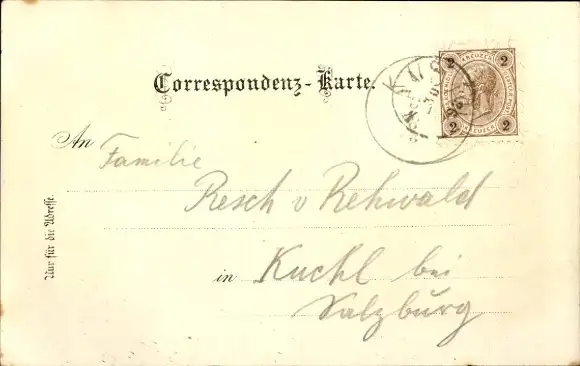 Correspondenz-Karte.
2 KREUZER 2
2 KREUZER 2
An Familie
Resch v Rehwald
in Kuchl bei
Salzburg
Nur für die Adresse.